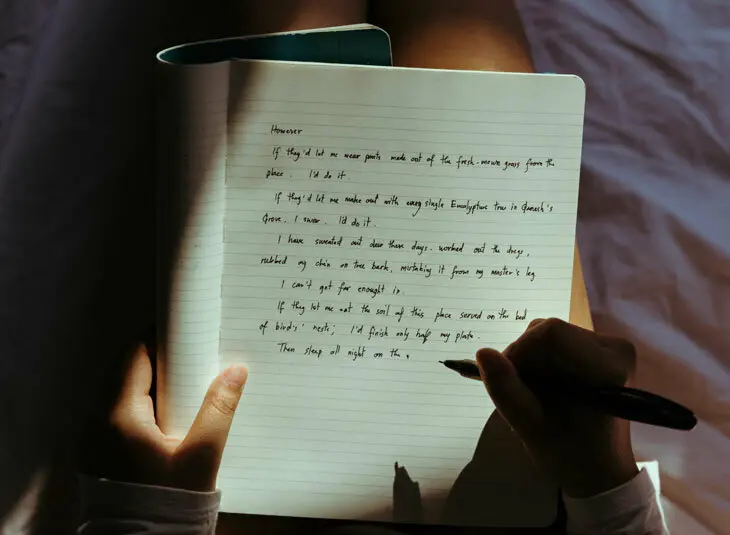 However
If they'd let me wear pants made out of the fresh-mown grass from the
place. I'd do it.
If they'd let me make out with every single Eucalyptus tree in Ganesh's
Grove. I swear. I'd do it.
I have sweated out dew these days. worked out the dregs,
rubbed my chin on tree bark, mistaking it from my master's leg
I can't get far enought in.
If they let me eat the soil of this place served on the bed
of bird's' nests; I'd finish only half my plate.
Then sleep all night on the